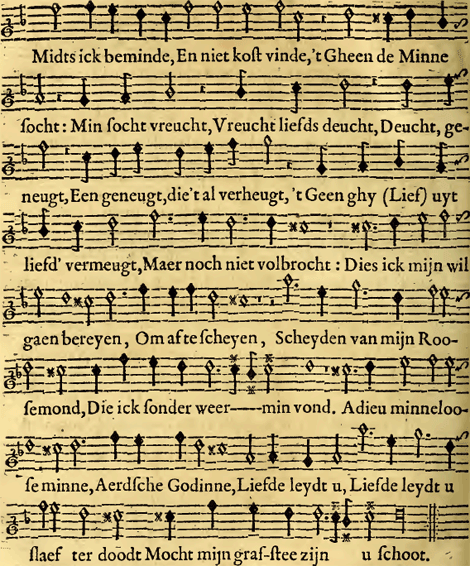 Midts ick beminde, En niet kost vinde, 't Gheen de Minne
socht: Min socht vreucht, Vreucht liefds deucht, Deucht, ge-
neugt, Een geneugt, die't al verheugt, 't Geen ghy (Lief) uyt
liefd' vermeugt, Maer noch niet volbrocht: Dies ick mijn wil
gaen bereyen, Om af te scheyen, Scheyden van mijn Roo-
semond, Die ick sonder weer—min vond. Adieu minneloo-
se minne, Aerdsche Godinne, Liefde leydt u, Liefde leydt u
slaef ter doodt Mocht mijn graf-stee zijn u schoot.